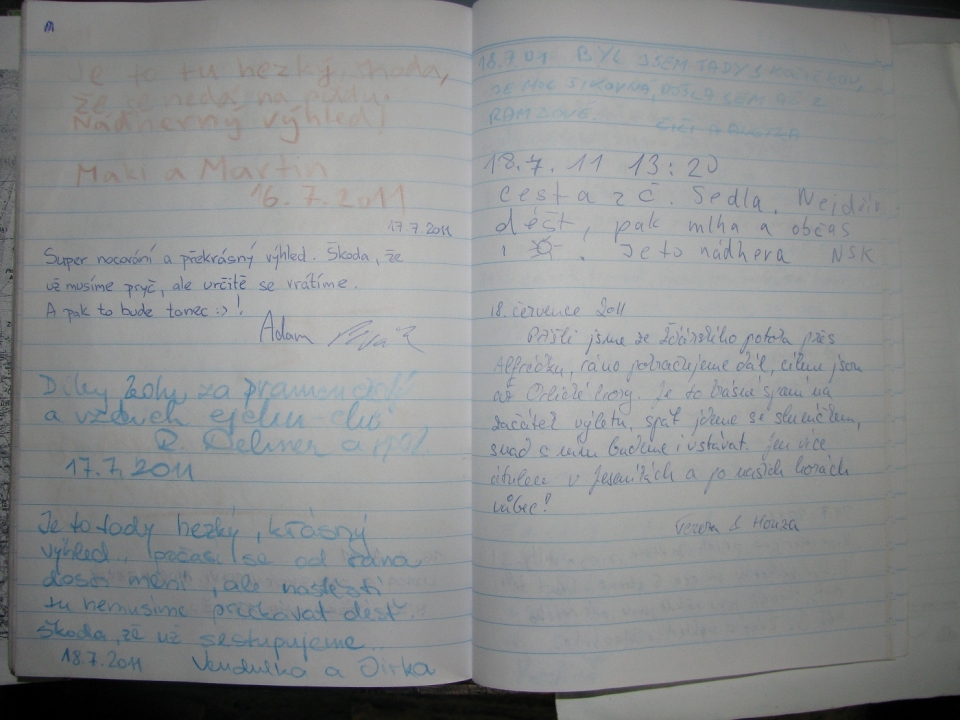 Je to tu hezký, škoda,
že se nedá na půdu.
Nádherný výhled!
Maki a Martin
16. 7. 2011
17.7.2011
Super nocování a překrásný výhled. Škoda, že
už musíme pryč, ale určitě se vrátíme.
A pak to bude tanec :-) !
Adam
Díky Bohu za
a vzduch
R. a spol.
17.7.2011
Je to tady hezký, krásný
výhled.. počasí se od rána
dosti mění, ale naštěstí
tu nemusíme přečkávat déšť.
Škoda, že už sestupujeme...
18.7.2011 Vendulka a Jirka
18.7. BYL JSEM TADY S
JE MOC ŠIKOVNÁ, DOŠLA SEM AŽ Z
RAMZOVÉ.
18.7. 11 13:20
Cesta z Č. Sedla. Nejdřív
déšť, pak mlha a občas
i ! Je to nádhera NSK
18. července 2011
Přišli jsme ze Žďárského potoka přes
Alfrédku, ráno pokračujeme dál, cílem jsou
až Orlické hory. Je to krásné spaní na
začátek výletu, spát jdeme se sluníčkem,
snad s ním budeme i vstávat. Jen více
útulen v Jeseníkách a po našich horách
vůbec!
Tereza & Honza